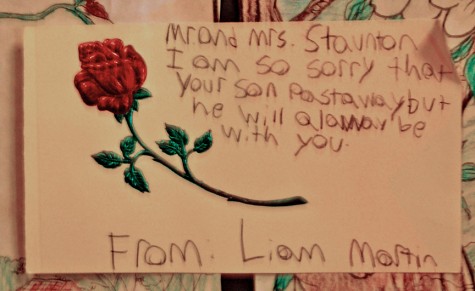 Mr and Mrs. Staunton
I am so sorry that
your son pastaway but
he will alaway be
with you.
From: Liam Martin